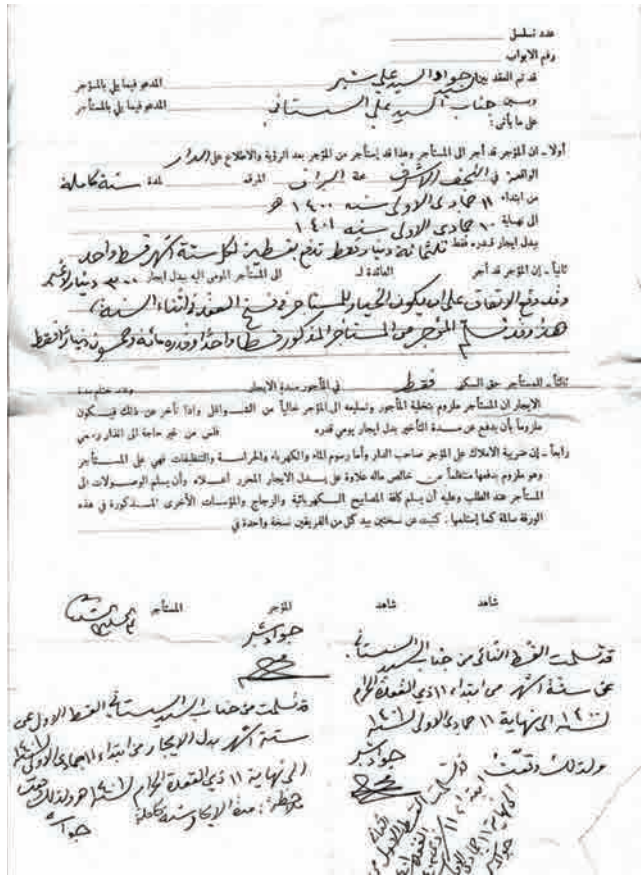 عدد تسلسل
رقم الابواب
قد تم العقد بين جواد السيد علي شبر المدعو فيما يلي بالمؤجر
وبين جناب السيد علي السيستاني المدعو فيما يلي بالمستأجر
على ما يأتي :
أولا ـ ان المؤجر قد أجر الى المستأجر وهذا قد إستأجر من المؤجر بعد الرؤية والاطلاع على الدار
الواقعة في النجف الاشرف محلة البراق المرقمة لمدة سنة كاملة
من ابتداء ١١ جمادى الاولى سنه ١٤٠٠ هـ
الى نهاية ١٠ جمادى الاولى سنه ١٤٠١
ببدل ايجار قدره فقط ثلثمائة دينار فقط تدفع بقسطين لكل ستة أشهر قسط واحد
ثانياً ـ إن المؤجر قد أجر العائدة لـ الى المستأجر المومى اليه ببدل ايجار ٣٠٠ دينار
وقد وقع الاتفاق على ان يكون الخيار للمستأجر في فسخ العقد في اثناء السنة
هذا وقد تسلم المؤجر من المستأجر المذكور قسطا واحدا وقدره مائة وخمسون دينارا فقط
ثالثاً ـ للمستأجر حق السكنى فقط في المأجور مدة الايجار وعند ختام مدة
الايجار ان المستأجر ملزوم بتخلية المأجور وتسليمه الى المؤجر خالياً من الشواغل واذا تأخر عن ذلك فيكون
ملزوماً بأن يدفع عن مدة التأخير بدل ايجار يومي قدره فلس من غير حاجة الى انذار رسمي
رابعاً ـ إن ضريبة الاملاك على المؤجر صاحب الدار وأما رسوم الماء والكهرباء والحراسة والتنظيفات فهي على المستأجر
وهو ملزوم بدفعها منتظماً من خالص ماله علاوة على بدل الايجار المحرر أعلاه وأن يسلم الوصولات الى
المستأجر عند الطلب وعليه أن يسلم كافة المصابيح الكهربائية والزجاج والمؤسسات الأخرى المذكورة في هذه
الورقة سالمة كما إستلمها : كتبت عن نسختين بيد كل من الفريقين نسخة واحدة في
شاهد شاهد المؤجر المستأجر
جواد شبر
قد تسلمت القسط الثاني من جناب السيد السيستاني
عن ستة اشهر من ابتداء ١١ ذي القعدة الحرام
لسنة ١٤٠٠ الى نهاية ١١ جمادى الاولى لسنة ١٤٠١
ولذلك وقعت جواد شبر
قد تسلمت من جناب السيد السيستاني القسط الاول عن
ستة اشهر بدل الايجار من ابتداء ١١ جمادى الاولى ١٤٠١
الى نهاية ١١ ذي القعدة الحرام لسنة ١٤٠١ هـ ولذلك وقعت
مدة الايجار سنة كاملة جواد
قد تسلمت القسط الاول من